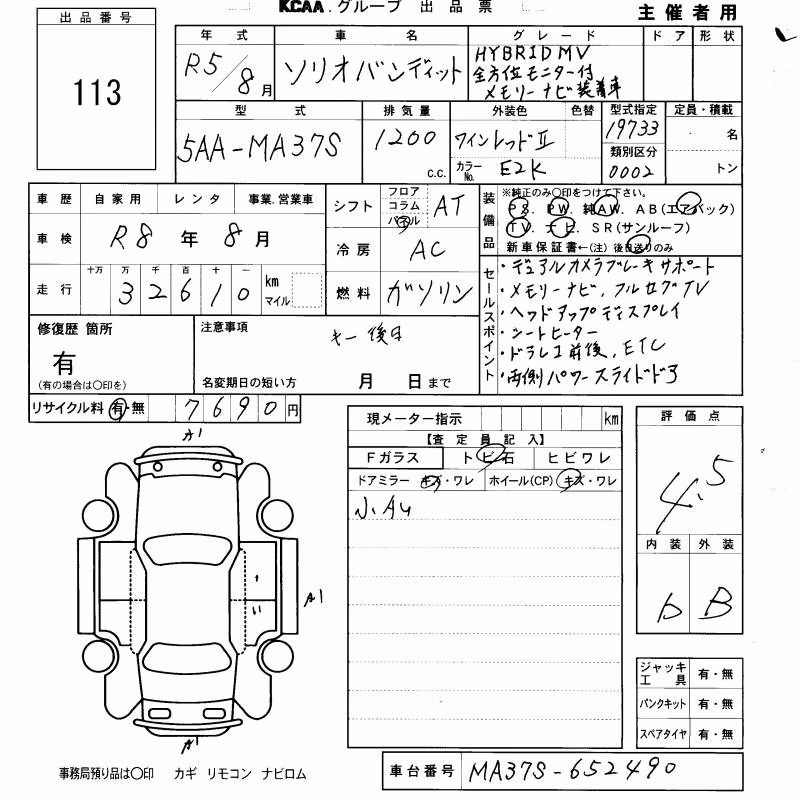 KCAA.グループ 出品票
主催者用
出品番号
113
年式 車名 グレード ドア 形状
R5/8月 ソリオバンディット HYBRID MV
全方位モニター付
メモリーナビ装着車
型式 排気量 外装色 色替 型式指定 定員・積載
5AA-MA37S 1200 c.c. ワインレッドⅡ 19733 名
類別区分
カラーNo. E2K 0002 トン
車歴 自家用 レンタ 事業.営業車
車検 R8年8月
走行 十万 万 千 百 十 一 km マイル
32610
シフト フロア コラム パネル AT
冷房 AC
燃料 ガソリン
装備品 ※純正のみ〇印をつけて下さい。
PS. PW. 純AW. AB(エアバック)
TV. ナビ. SR(サンルーフ)
新車保証書←(注)後日送りのみ
セールスポイント
・デュアルカメラブレーキサポート
・メモリーナビ, フルセグTV
・ヘッドアップディスプレイ
・シートヒーター
・ドラレコ前後, ETC
・両側パワースライドドア
修復歴 箇所
有
(有の場合は〇印を)
注意事項
キー後日
名変期日の短い方 月 日まで
リサイクル料 有・無 7690円
現メーター指示 km
【査定員記入】
Fガラス トビ石 ヒビワレ
ドアミラー キズ・ワレ ホイール(CP) キズ・ワレ
小A4
評価点
4.5
内装 外装
b B
A1
A1
A1
ジャッキ工具 有・無
パンクキット 有・無
スペアタイヤ 有・無
事務局預り品は〇印 カギ リモコン ナビロム
車台番号 MA37S-652490